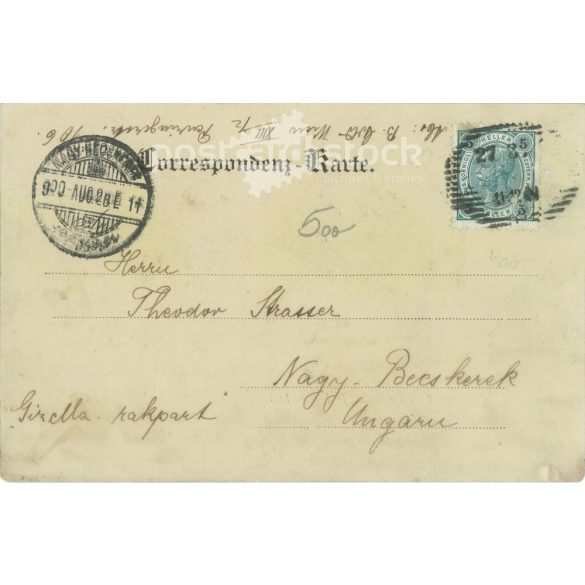 Abs: B Wien XIII/2
Correspondenz-Karte.
NAGY-BECSKEREK
900 AUG. 28 E 11
5
HELLER
27
500
Herrn
Theodor Strasser
Nagy-Becskerek
"Gizella rakpart"
Ungarn
postcardstock
pictures & stories